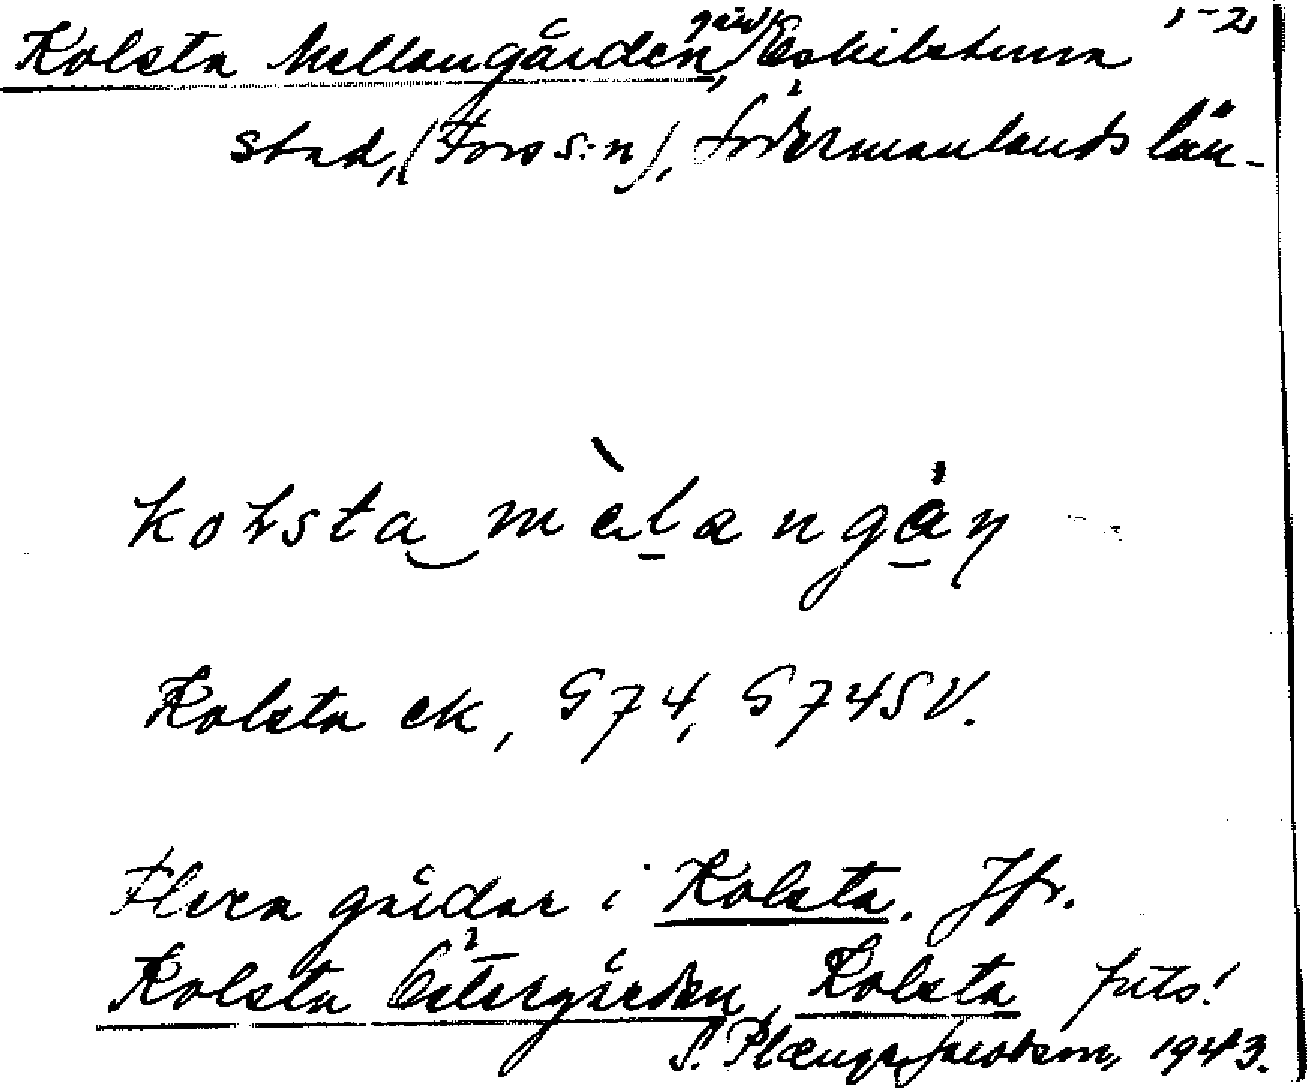 Kolsta Mellangården, gård, Eskilstuna 1-2,
stad, (Fors s:n), Södermanlands län.
kolsta mèlangån
Kolsta ek, G74, G74SV.
Flera gårdar i Kolsta. Jfr.
Kolsta Östergården, Kolsta
S. 1943.